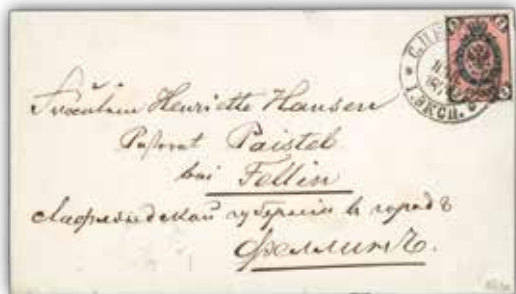 Fräulein Henriette Hansen
Pastorat Paistel
bei Fellin
Лифляндской губернiи въ городъ
Феллинъ.
С.П.
I. ЭКСП.